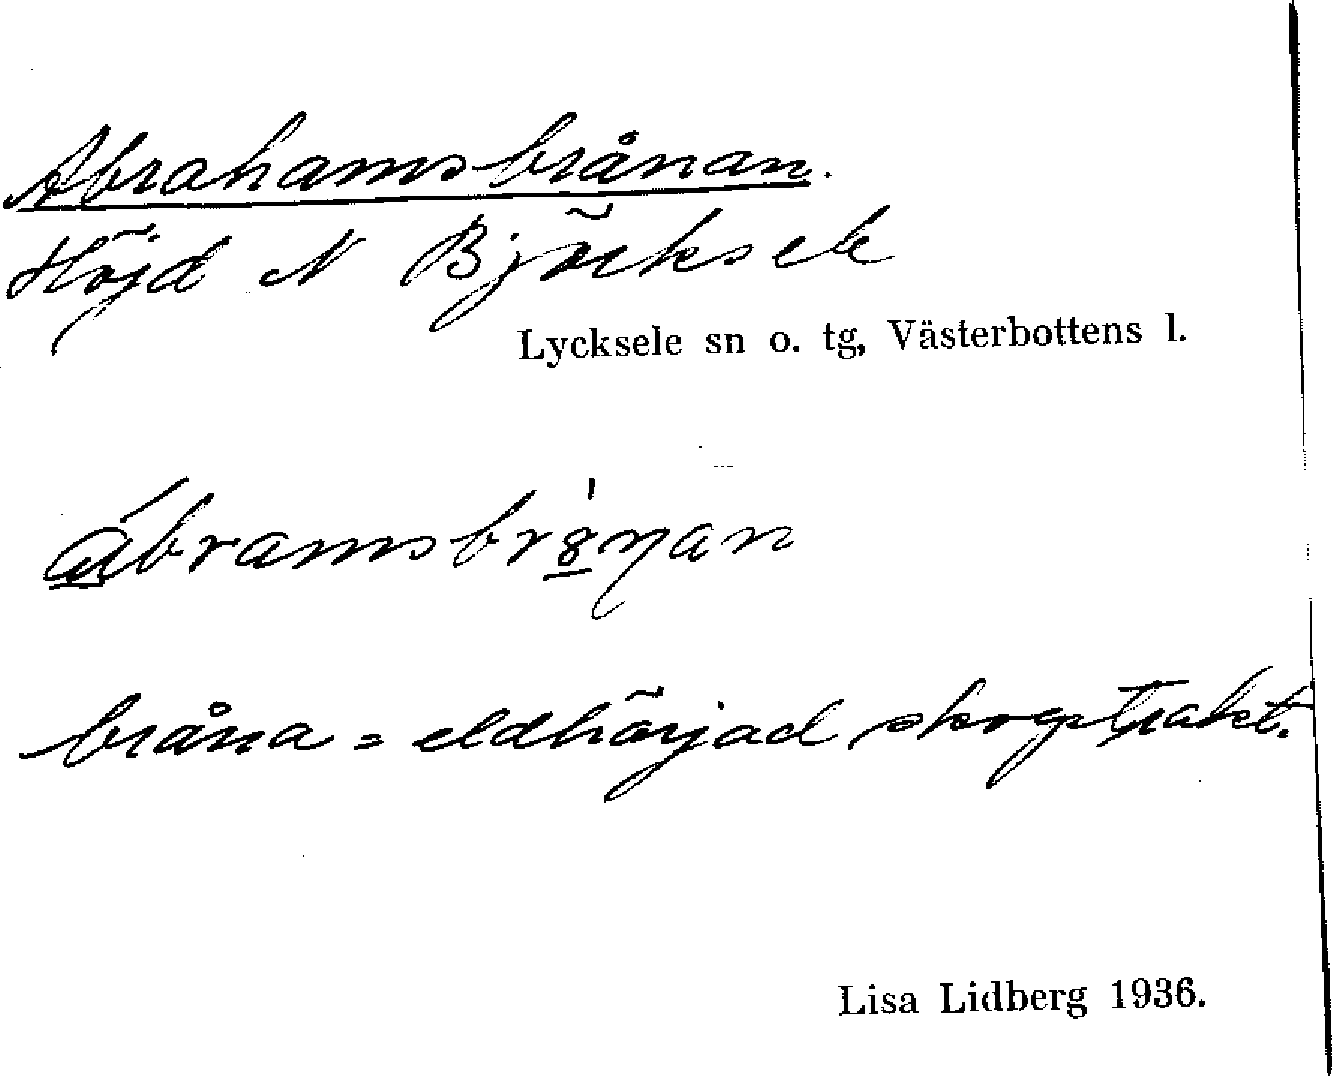 Abrahamsbrånan.
Höjd N Björksele
Lycksele sn o. tg, Västerbottens l.
bråna = eldhärjad skogstrakt.
Lisa Lidberg 1936.